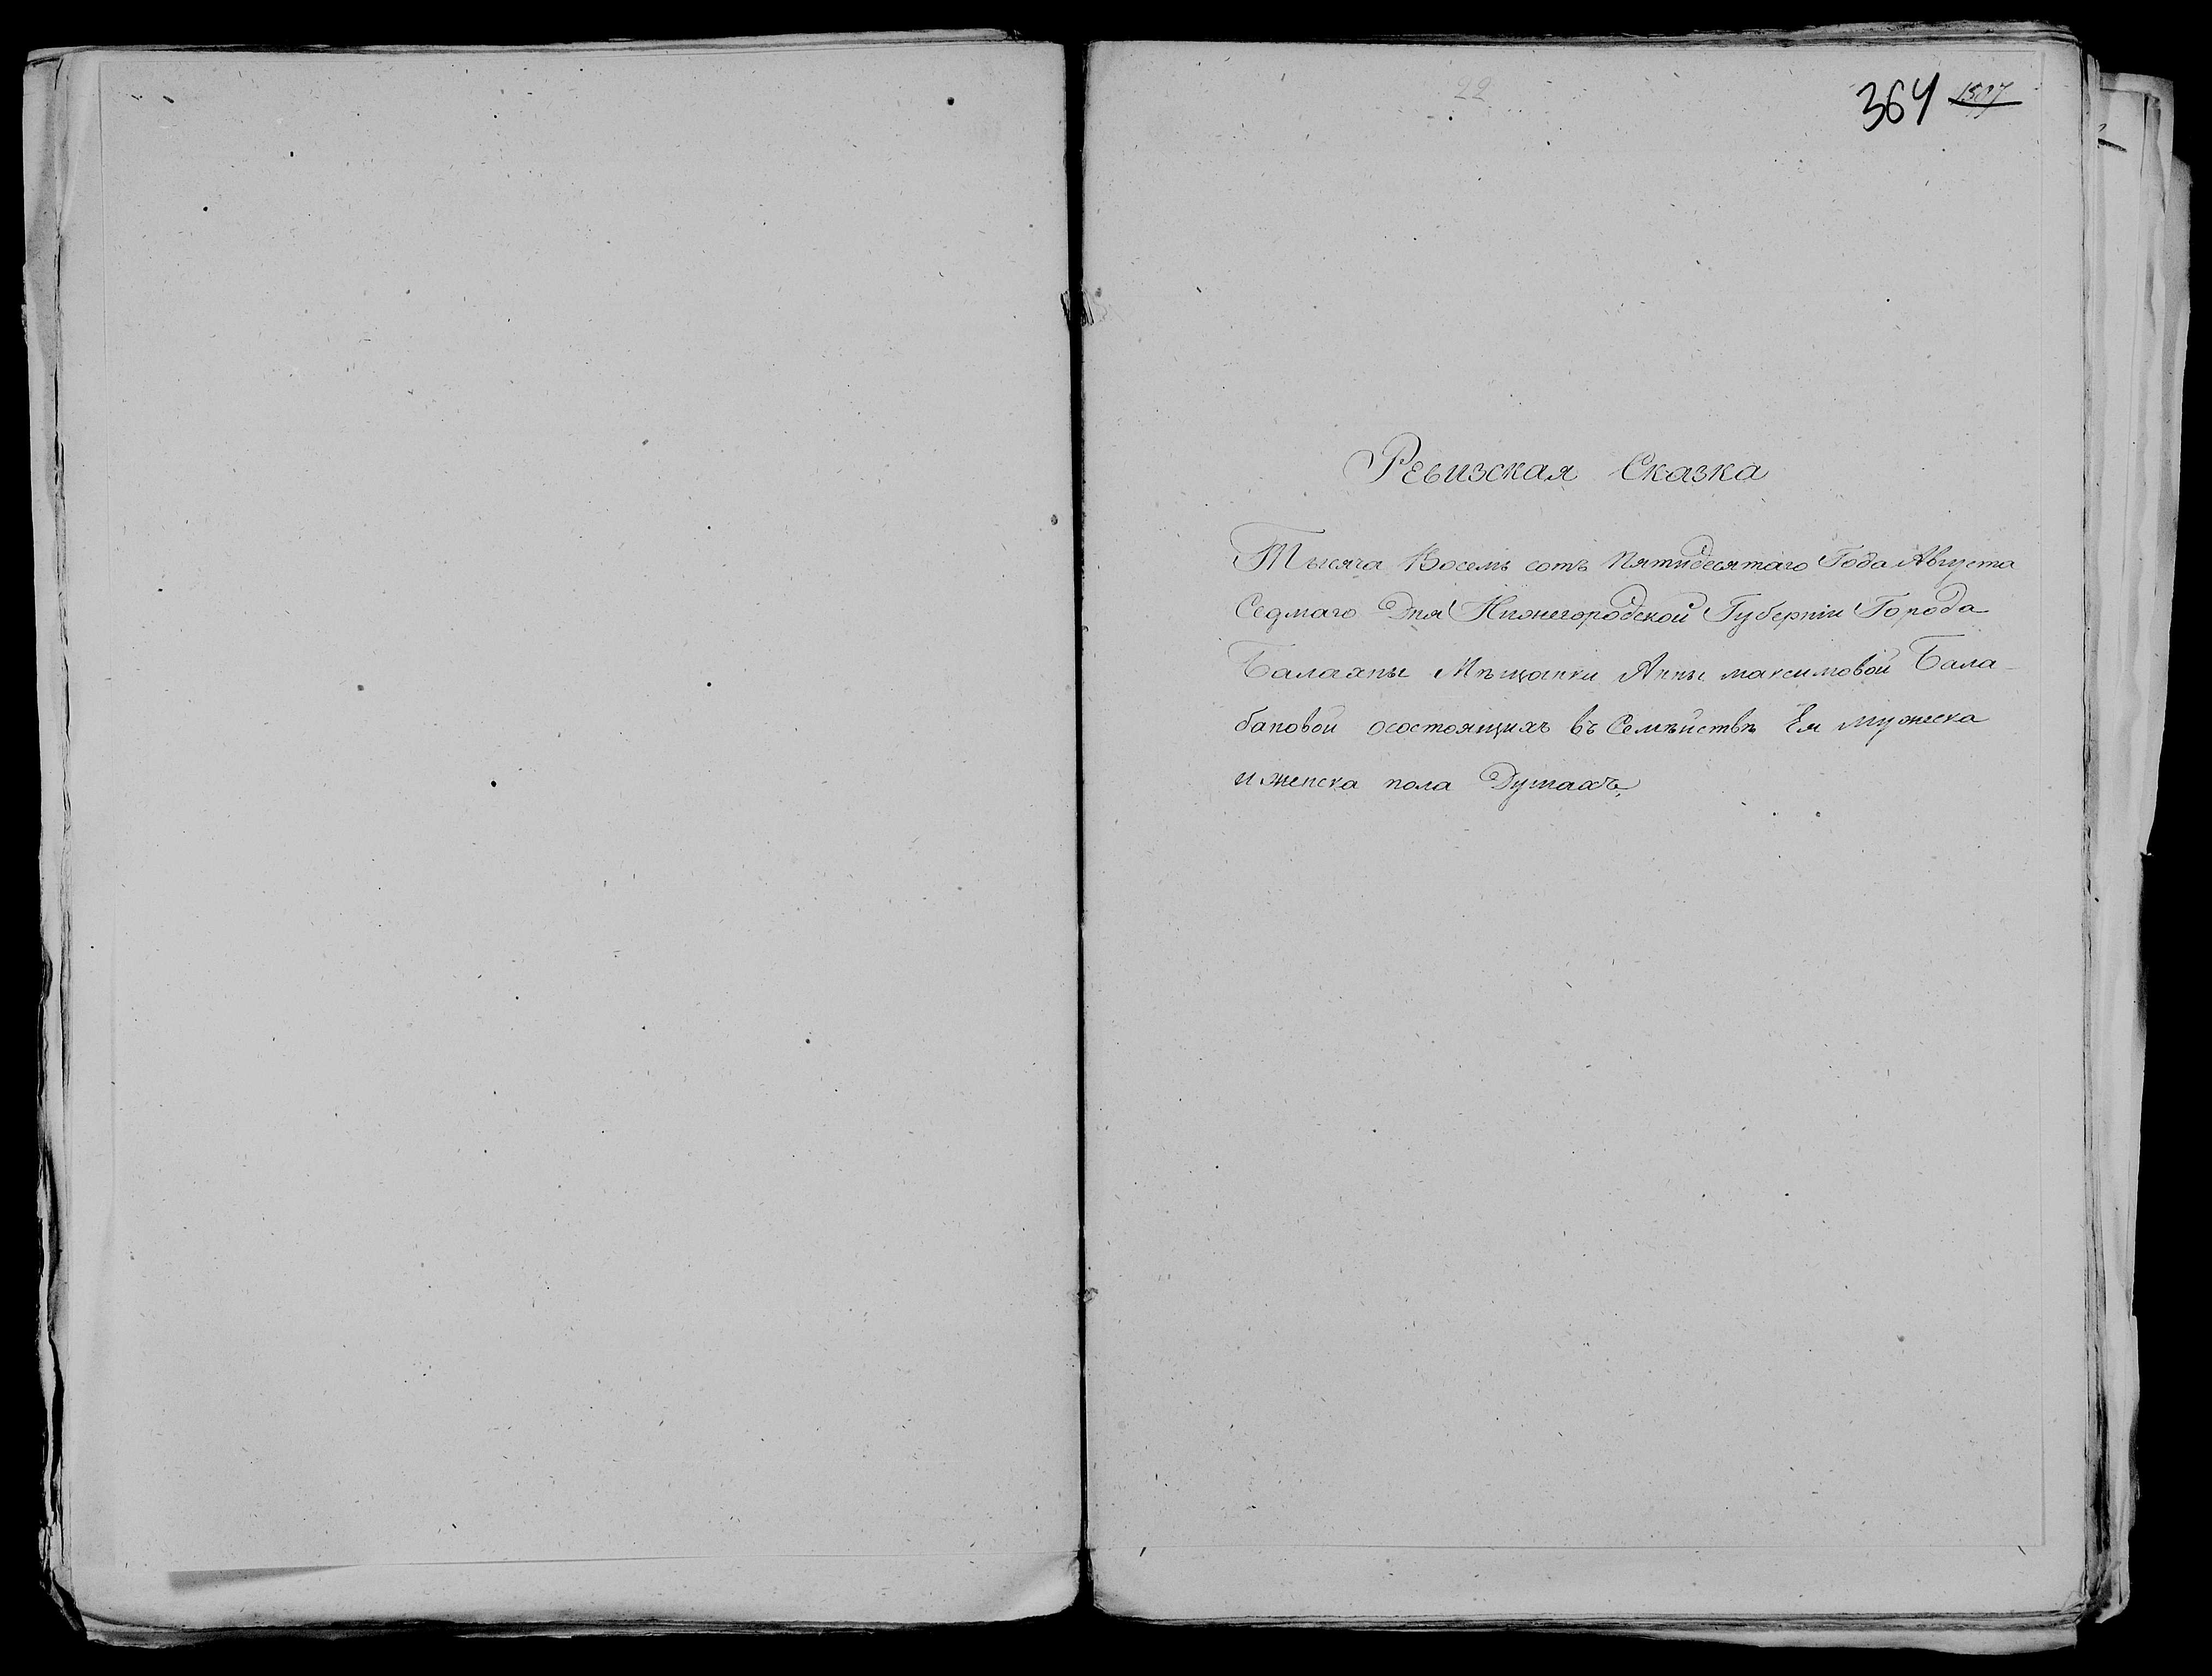 22
364 1507
Ревизская Сказка
Тысяча Восемь сотъ Пятидесятаго Года Августа
Седмаго Дня Нижегородской Губернiи Города
Балахны Мѣщанки Анны максимовой Бала-
бановой осостоящихъ въ Семѣйствѣ Ея мужеска
и женска пола Душахъ,